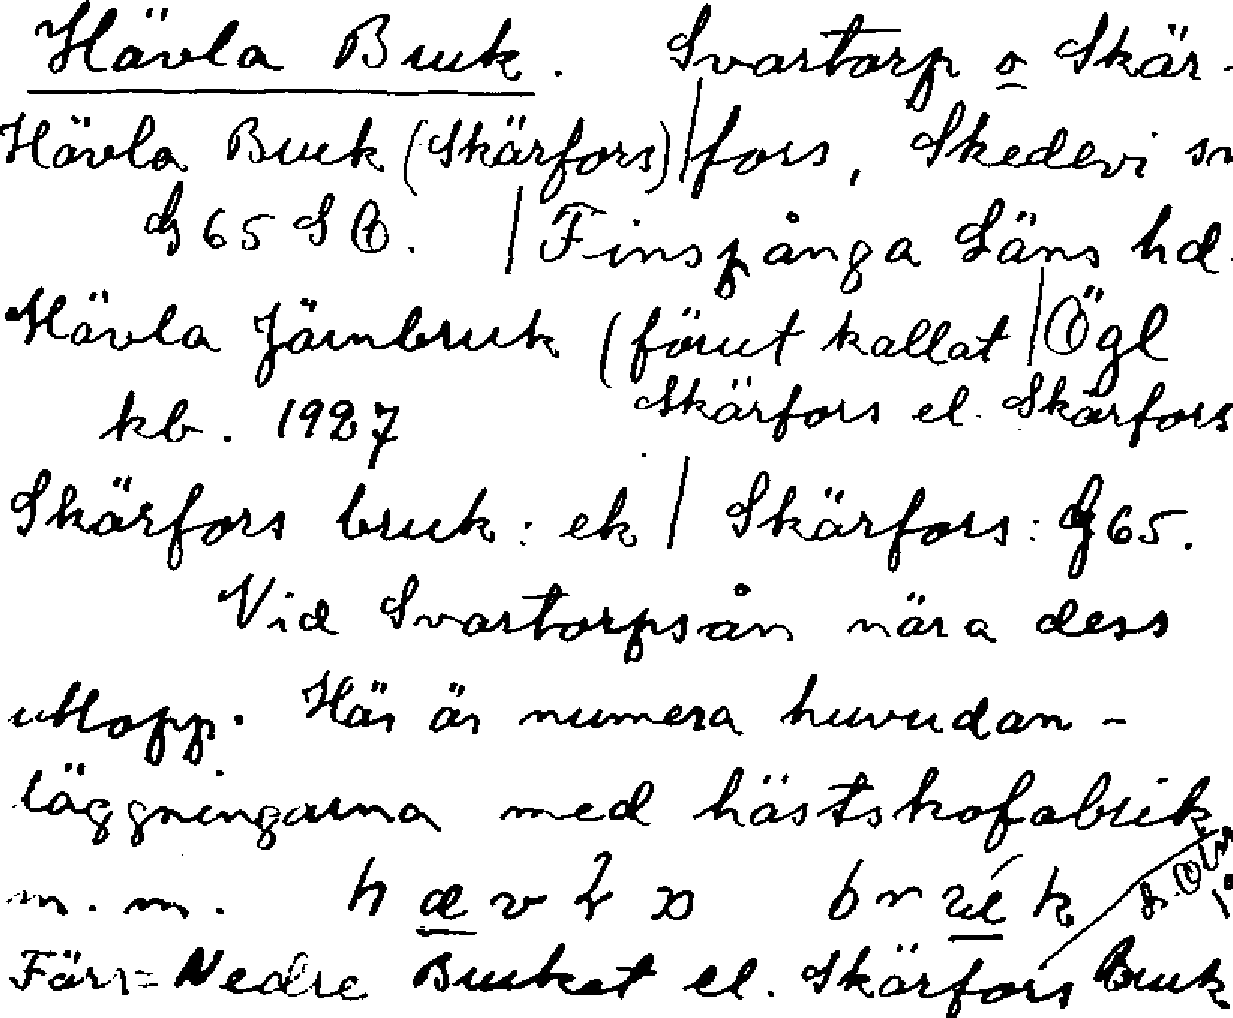 Hävla Bruk. Svartorp o Skär-
Hävla Bruk (Skärfors) | fors, Skedevi sn
G 65 SÖ. | Finspånga Läns hd.
Hävla Järnbruk (förut kallat | Ögl
kb. 1927 Skärfors el. Skårfors
Skärfors bruk: ek | Skärfors: G 65.
Vid Svartorpsån nära dess
utlopp. Här är numera huvudan-
läggningarna med hästskofabrik
m.m.
Färr= Nedre Bruket el. Skärfors Bruk